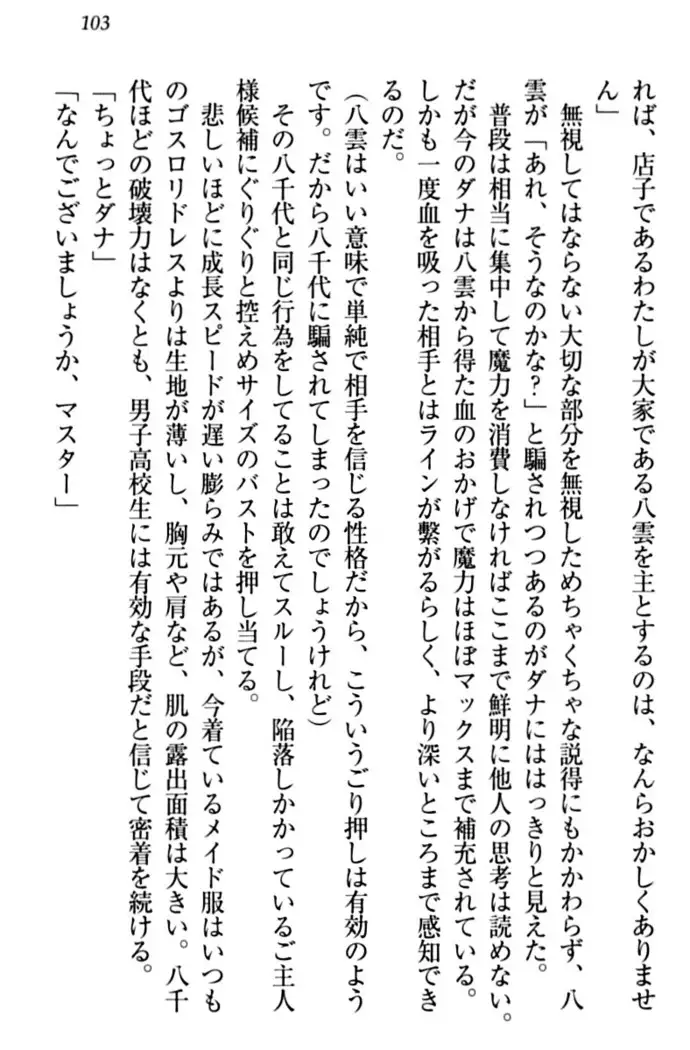 103
れば、店子であるわたしが大家である八雲を主とするのは、なんらおかしくありませ
ん」
無視してはならない大切な部分を無視しためちゃくちゃな説得にもかかわらず、八
雲が「あれ、そうなのかな？」と騙されつつあるのがダナにははっきりと見えた。
普段は相当に集中して魔力を消費しなければここまで鮮明に他人の思考は読めない。
だが今のダナは八雲から得た血のおかげで魔力はほぼマックスまで補充されている。
しかも一度血を吸った相手とはラインが繋がるらしく、より深いところまで感知でき
るのだ。
（八雲はいい意味で単純で相手を信じる性格だから、こういうごり押しは有効のよう
です。だから八千代に騙されてしまったのでしょうけれど）
その八千代と同じ行為をしてることは敢えてスルーし、陥落しかかっているご主人
様候補にぐりぐりと控えめサイズのバストを押し当てる。
悲しいほどに成長スピードが遅い膨らみではあるが、今着ているメイド服はいつも
のゴスロリドレスよりは生地が薄いし、胸元や肩など、肌の露出面積は大きい。八千
代ほどの破壊力はなくとも、男子高校生には有効な手段だと信じて密着を続ける。
「ちょっとダナ」
「なんでございましょうか、マスター」